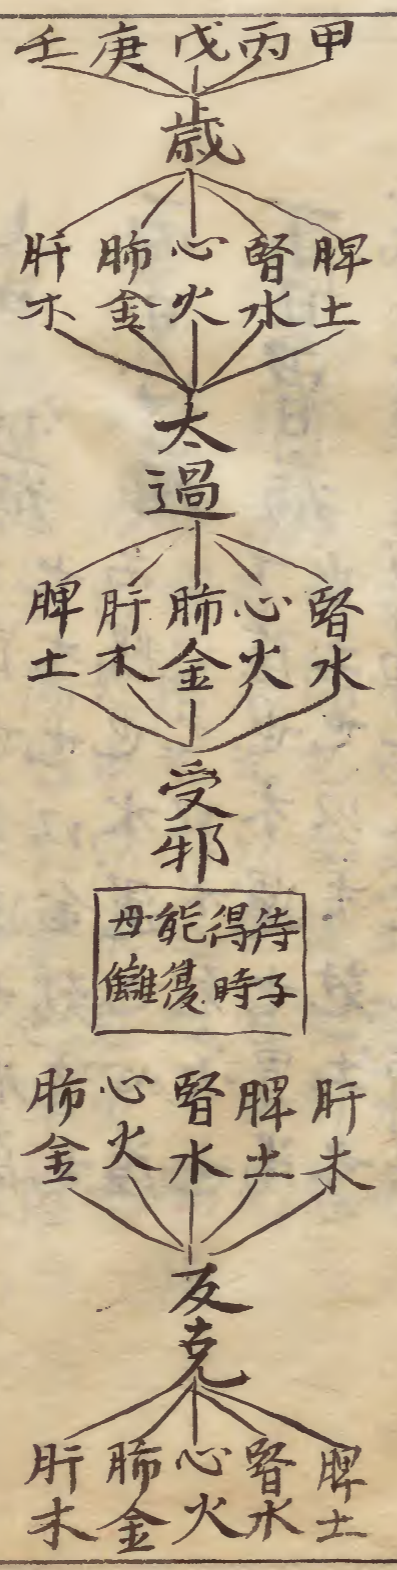 甲
丙
戊
庚
壬
歳
脾土
腎水
心火
肺金
肝木
太過
腎水
心火
肺金
肝木
脾土
受邪
待子
得時
能復
母讎
肝木
脾土
腎水
心火
肺金
反克
脾土
腎水
心火
肺金
肝木